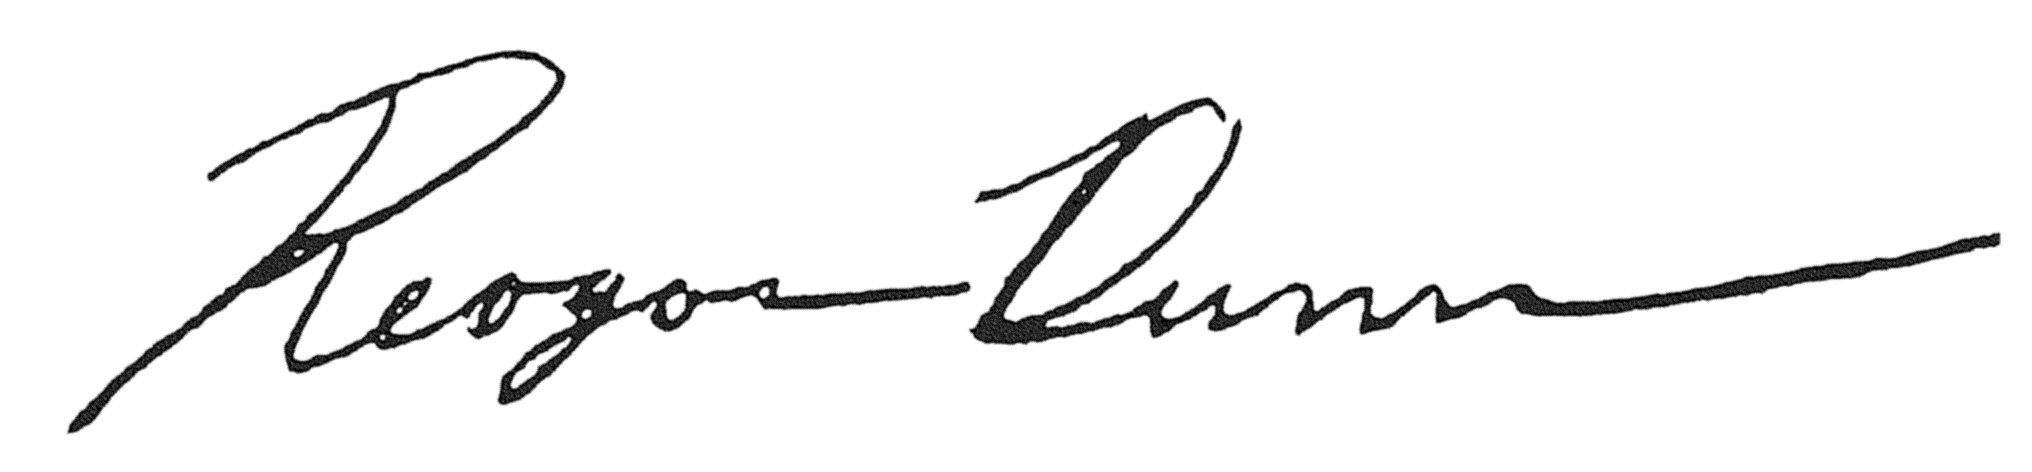 Reagan Dunn